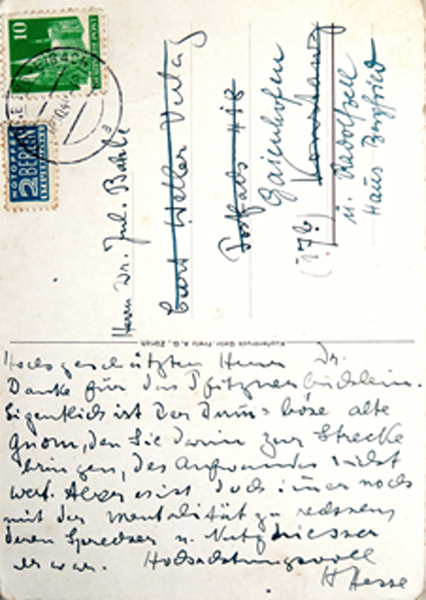 10
DEUTSCHE POST
NOTOPFER
2 BERLIN
STEUERMARKE
Herrn Dr. Jul. Bahle
Curt Weller Verlag
Postfach 418
Gaienhofen
(17b) Konstanz
ü. Radolfzell
Haus Bergfried
Kupferdruck Gebr. Fretz A.G., Zürich
Hochgeschätzter Herr Dr.
Danke für das Pfitznerbüchlein.
Eigentlich ist der dumm-böse alte
Gnom, den Sie darin zur Strecke
bringen, des Aufwandes nicht
wert. Aber es ist doch immer noch
mit der Mentalität zu rechnen,
deren Sprecher u. Nutzniesser
er war. Hochachtungsvoll
H Hesse